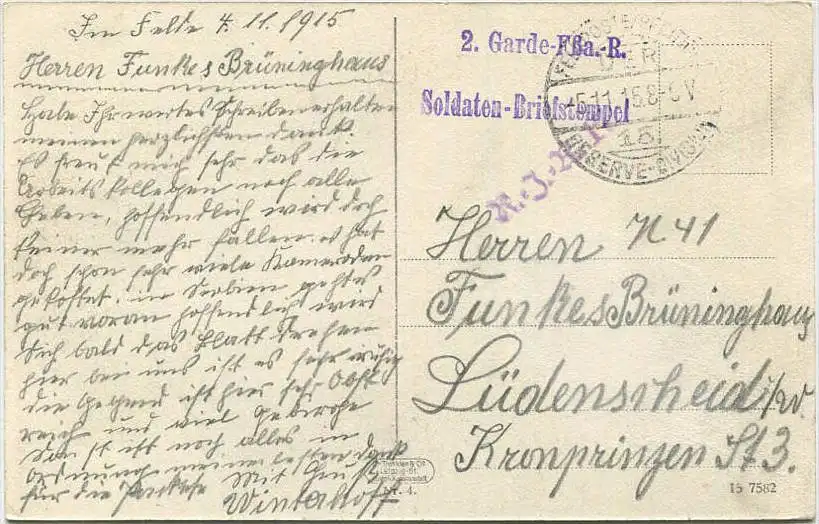 Im Felde 4.11.1915
Herren Funkes Brüninghaus
Habe Ihr wertes Schreiben erhalten
meinen herzlichsten Dank.
Es freut mich sehr das die
Arbeitskollegen noch alle
Leben, hoffendlich wird doch
keiner mehr fallen. es hat
doch schon sehr viele Kameraden
gekostet. in Serbien gehts
gut voran hoffendlich wird
sich bald das Blatt drehen
hier bei uns ist es sehr ruhig
die Gegend ist hier sehr Obst
reich und viel Gebirge
Sonst ist noch alles in
Ordnung meinen besten Dank
für die Pakete Mit Gruß
Winterhoff
2. Garde-Fßa.-R.
Soldaten-Briefstempel
5.11.15.8-9V
15.
RESERVE-DIVISION
Herren N 41
Funkes Brüninghaus
Lüdenscheid i/W.
Kronprinzen St 3.
Nr. 4.
15 7582